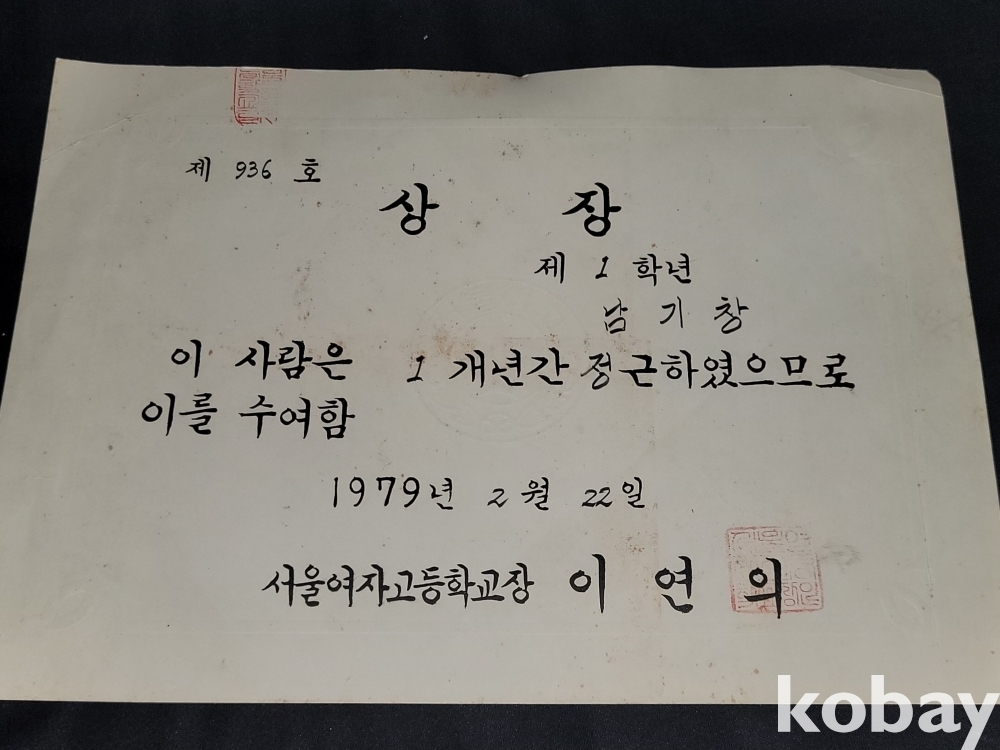 제 936 호
상 장
제 1 학년
남 기 창
이 사람은 1 개년간 정근하였으므로
이를 수여함
1979년 2월 22일
서울여자고등학교장 이 연 의
kobay